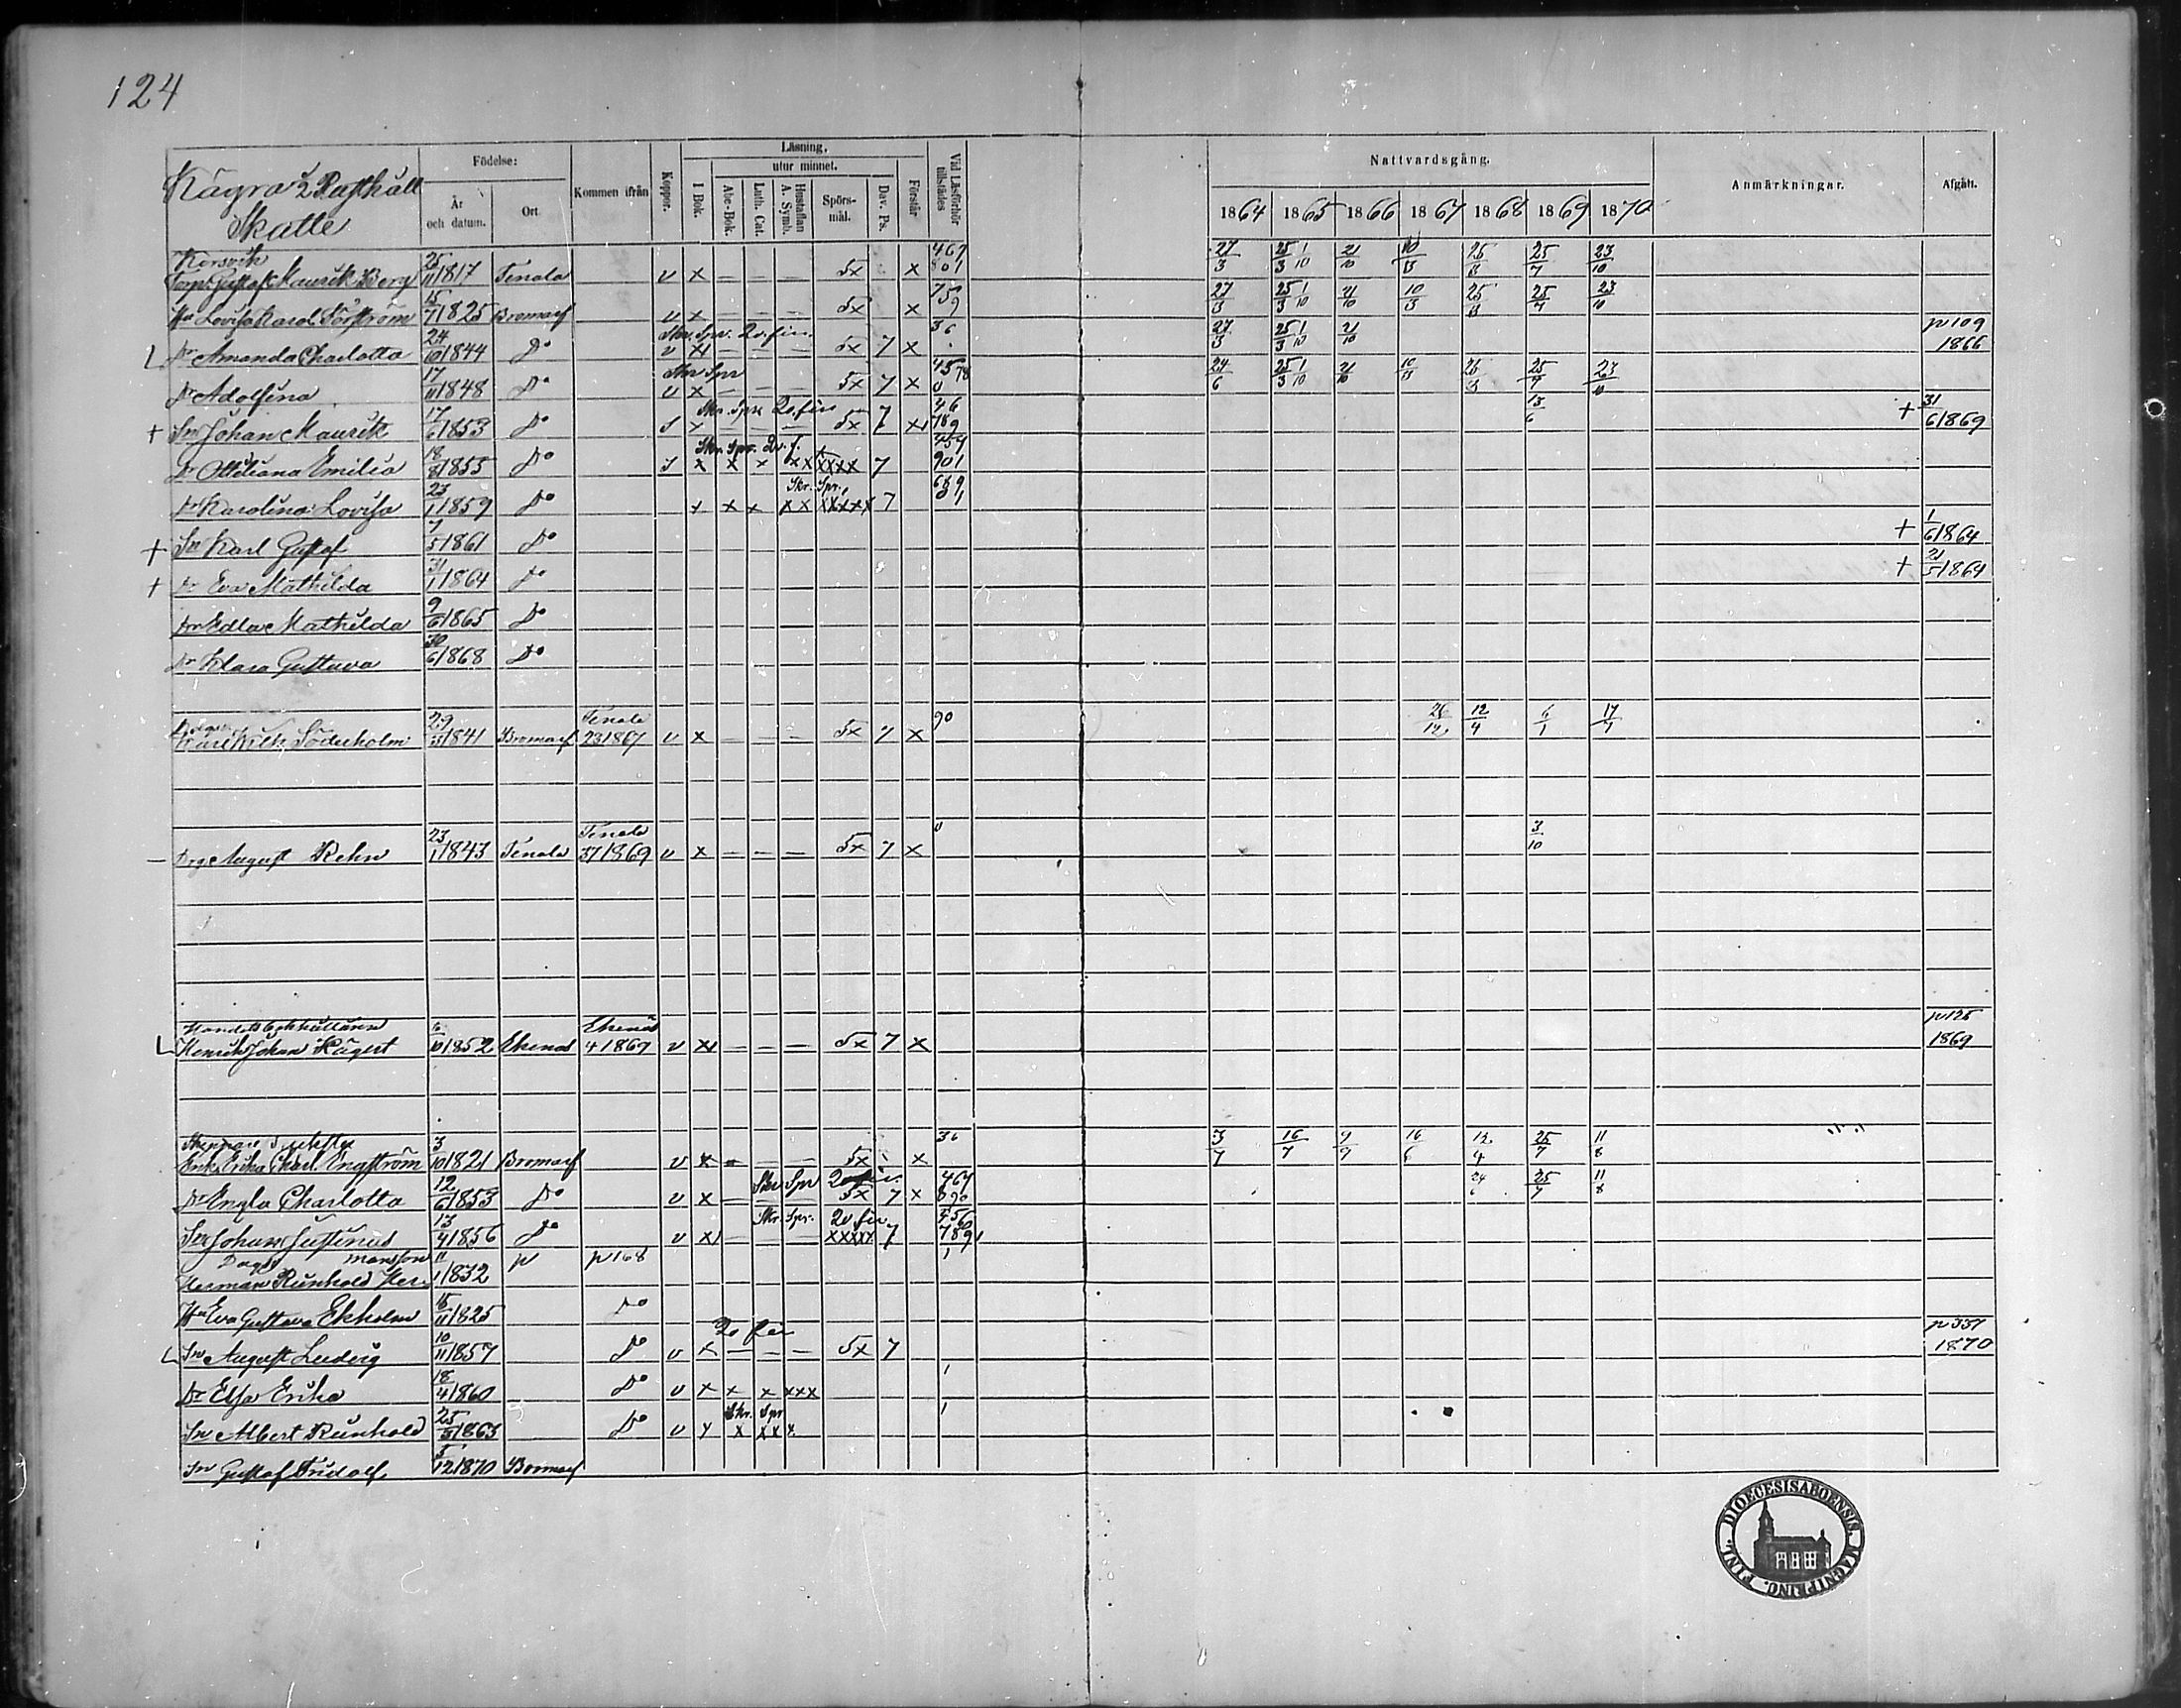 124
Kägra 2 Rusthåll
Skatte
Födelse:
År och datum.
Ort
Kommen ifrån
Koppor.
Läsning.
I Bok.
utur minnet.
Abc-Bok.
Luth. Cat.
Hustaflan A. Symb.
Spörs-mål.
Dav. Ps.
Förstår
Vid Läsförhör tillstädes
Nattvardsgång.
1864 1865 1866 1867 1868 1869 1870
Anmärkningar.
Afgått.
Korsvik
Torp. Gustaf Maurik Berg 25/11 1817 Tenala v x — — — 5x x 467 801 27/3 25/3 1/10 21/10 10/13 25/7 23/10
Hu Lovisa Karol. Forsström 15/7 1825 Bromarf v x — — — 5x x 27/3 25/3 1/10 21/10 10/13 25/7 23/10
Skr. Spr. 2o. fin. 36
Dr Amanda Charlotta 24/10 1844 Do v x — — — 5x 7 x 27/3 25/3 1/10 21/10 p 109 1866
Skr Spr
Dr Adolfina 17/11 1848 Do v x — — — 5x 7 x 24/6 25/3 1/10 21/10 10/13 25/7 23/10
Skr. Spr 2o. fin 46
+ Sn Johan Maurik 17/6 1853 Do x — — — 5x 7 789 13/6 + 31/6 1869
Skr. Spr. 459
Dr Ottiliana Emilia 18/8 1855 Do x x x xx xxxx 7 901
Skr. Spr. 689
Dr Karolina Lovisa 23/1 1859 Do x x x xx xxxxx 7
+ Sn Karl Gustaf 7/5 1861 Do + 1/6 1864
+ Dr Eva Mathilda 31/1 1864 Do + 21/5 1864
Dr Edla Mathilda 9/6 1865 Do
Dr Klara Gustava 30/6 1868 Do
Tenala 90
Karl Wilh. Söderholm 29/3 1841 Bromarf 23 1867 v x — — — 5x 7 x 26/12 12/4 6/1 17/7
Tenala
— Drg August Rehn 23/1 1843 Tenala 37 1869 v x — — — 5x 7 x 3/10
Ekenäs
Henrik Johan Kägert 6/10 1852 Ekenäs 4 1867 v x — — — 5x 7 x p 125 1869
36
Enk. Erika Charl. Engström 3/10 1821 Bromarf v x — 5x x 3/7 16/7 9/7 16/6 12/4 25/7 11/8
Skr Spr 467
Dr Engla Charlotta 12/6 1853 Do v x — — — 5x 7 x 890 24/6 25/7 11/8
Skr. Spr. 2o fin 456
Sn Johan Justinus 13/4 1856 Do v x — — — xxxxx 7 7891
Herman Reinhold Hermansson 11/1 1832 p p 168 1
Hu Eva Gustava Ekholm 15/11 1825 Do
2o fin
Sn August Ludvig 10/11 1857 Do v x — — — 5x 7 p 337 1870
Dr Elsa Erika 18/4 1860 Do v x x x xxx 1
Skr. Spr
Sn Albert Reinhold 25/5 1863 Do v x x xx x 1
Sn Gustaf Fridolf 5/12 1870 Bromarf
DIOECESIS ABOENSIS. MAGNI PRINC. FINL.